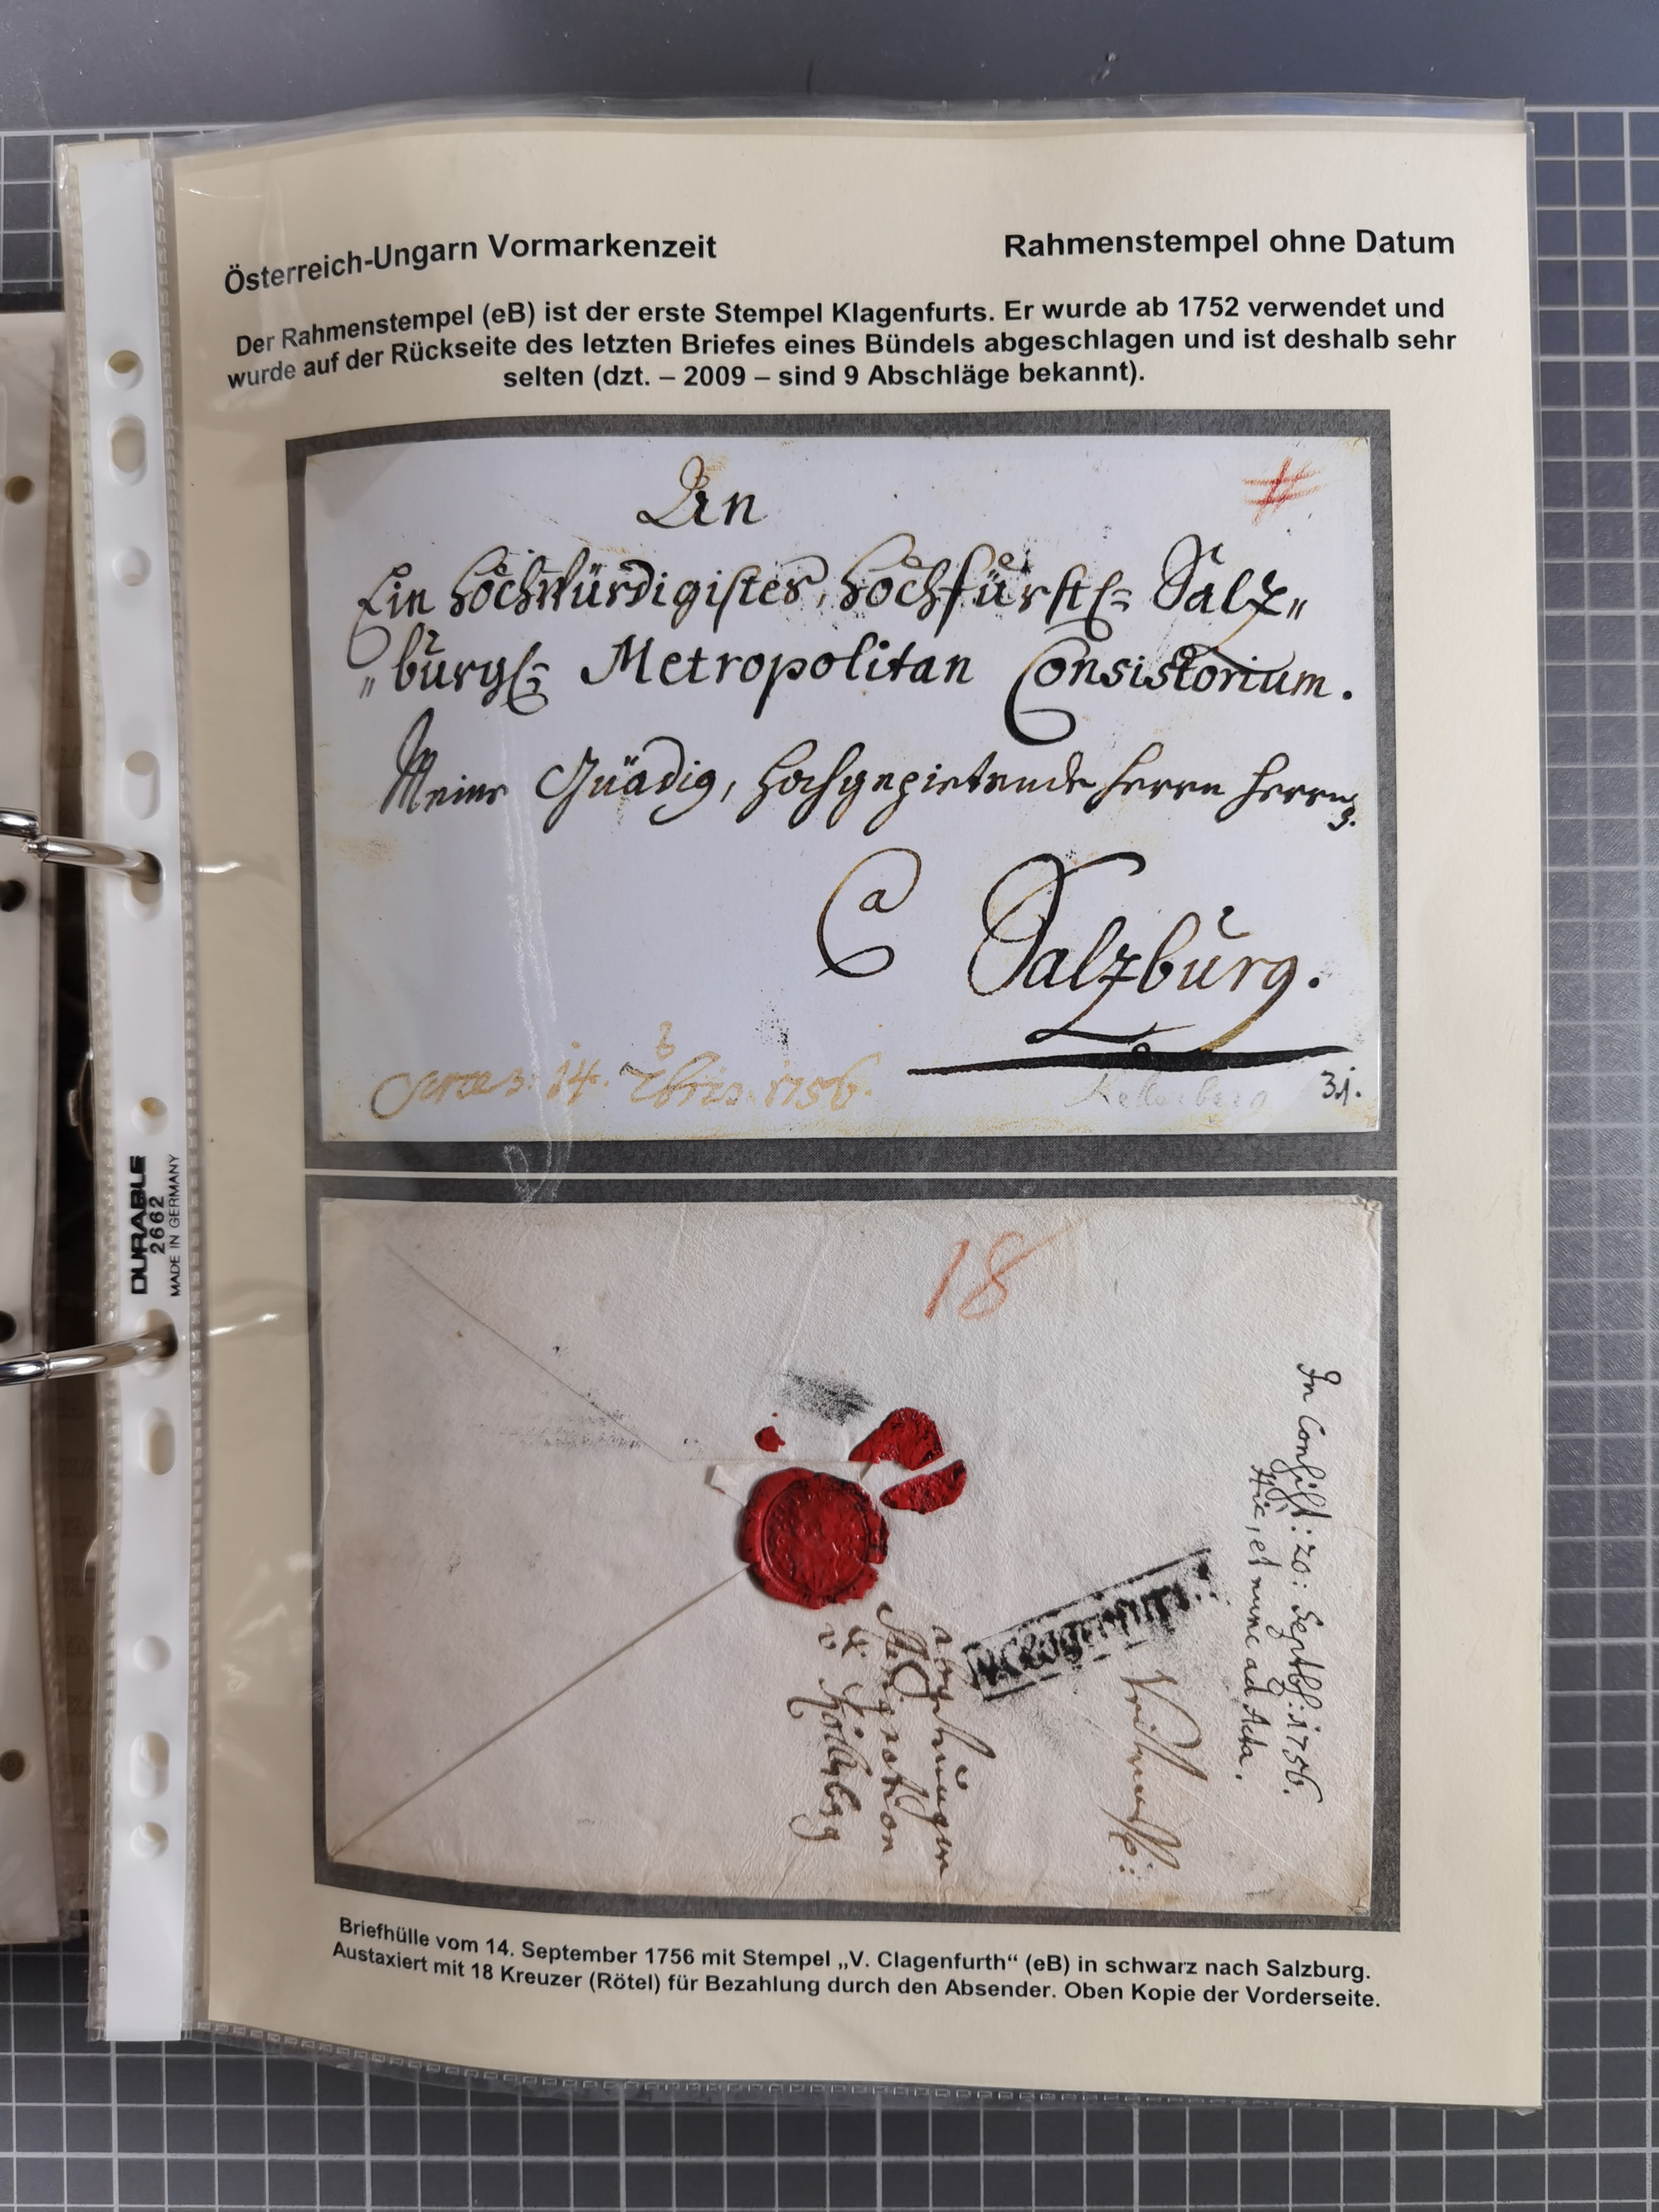 Österreich-Ungarn Vormarkenzeit
Rahmenstempel ohne Datum
Der Rahmenstempel (eB) ist der erste Stempel Klagenfurts. Er wurde ab 1752 verwendet und
wurde auf der Rückseite des letzten Briefes eines Bündels abgeschlagen und ist deshalb sehr
selten (dzt. – 2009 – sind 9 Abschläge bekannt).
An
Ein Hochwürdigistes, Hochfürstl: Salz„
„burgl: Metropolitan Consistorium.
Meine Gnädig, Hochgepietende Herrn Herrn
a Salzburg.
14. 7bris 1756.
Kellerberg
31.
18
In Consist: 20: Septbr: 1756.
Hic, et nunc ad Acta.
V. Clagenfurth
Resignation
DURABLE
2662
MADE IN GERMANY
Briefhülle vom 14. September 1756 mit Stempel „V. Clagenfurth“ (eB) in schwarz nach Salzburg.
Austaxiert mit 18 Kreuzer (Rötel) für Bezahlung durch den Absender. Oben Kopie der Vorderseite.